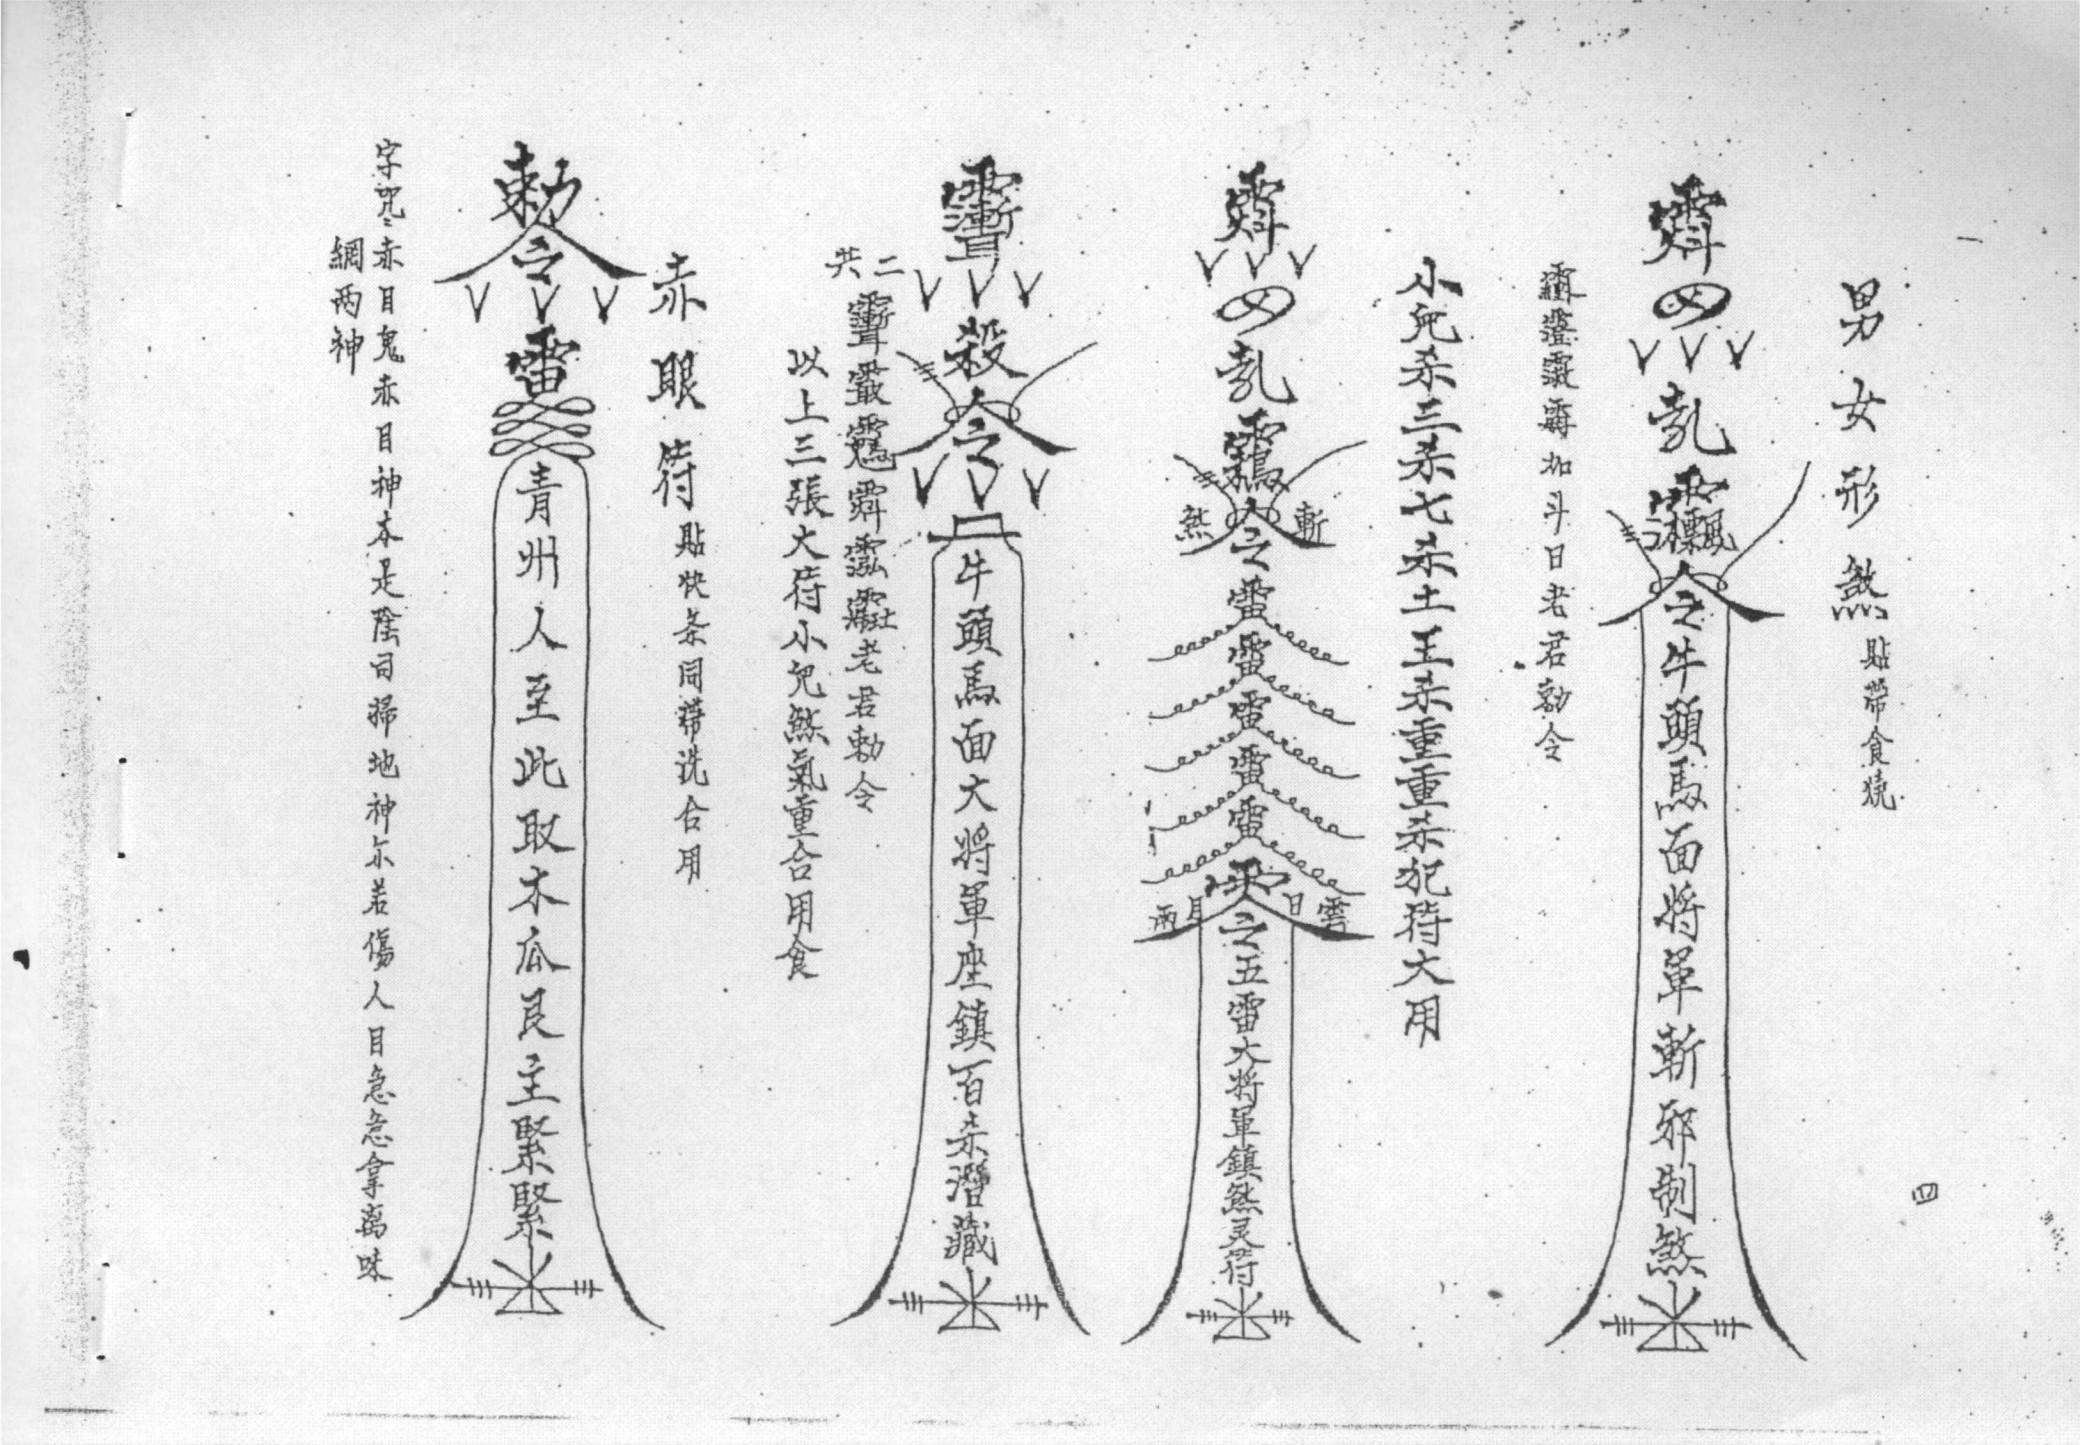 男女形煞
貼帶食燒
令牛頭馬面将軍斬邪制煞
加斗日老君勅令
小兒杀三杀七杀土王杀重重杀犯符大用
煞令斬
雷雷雷雷雷
雨月令日雲
五雷大将軍鎮煞灵符
殺令
牛頭馬面大將軍座鎮百杀潛藏
共二
老君勅令
以上三張大符小兒煞氣重合用食
赤眼符
貼快条同帶洗合用
勅令
雷
青州人至此取木瓜艮主緊緊
字咒赤目鬼赤目神本是陰司掃地神尔若傷人目急急拿离味
網两神
四